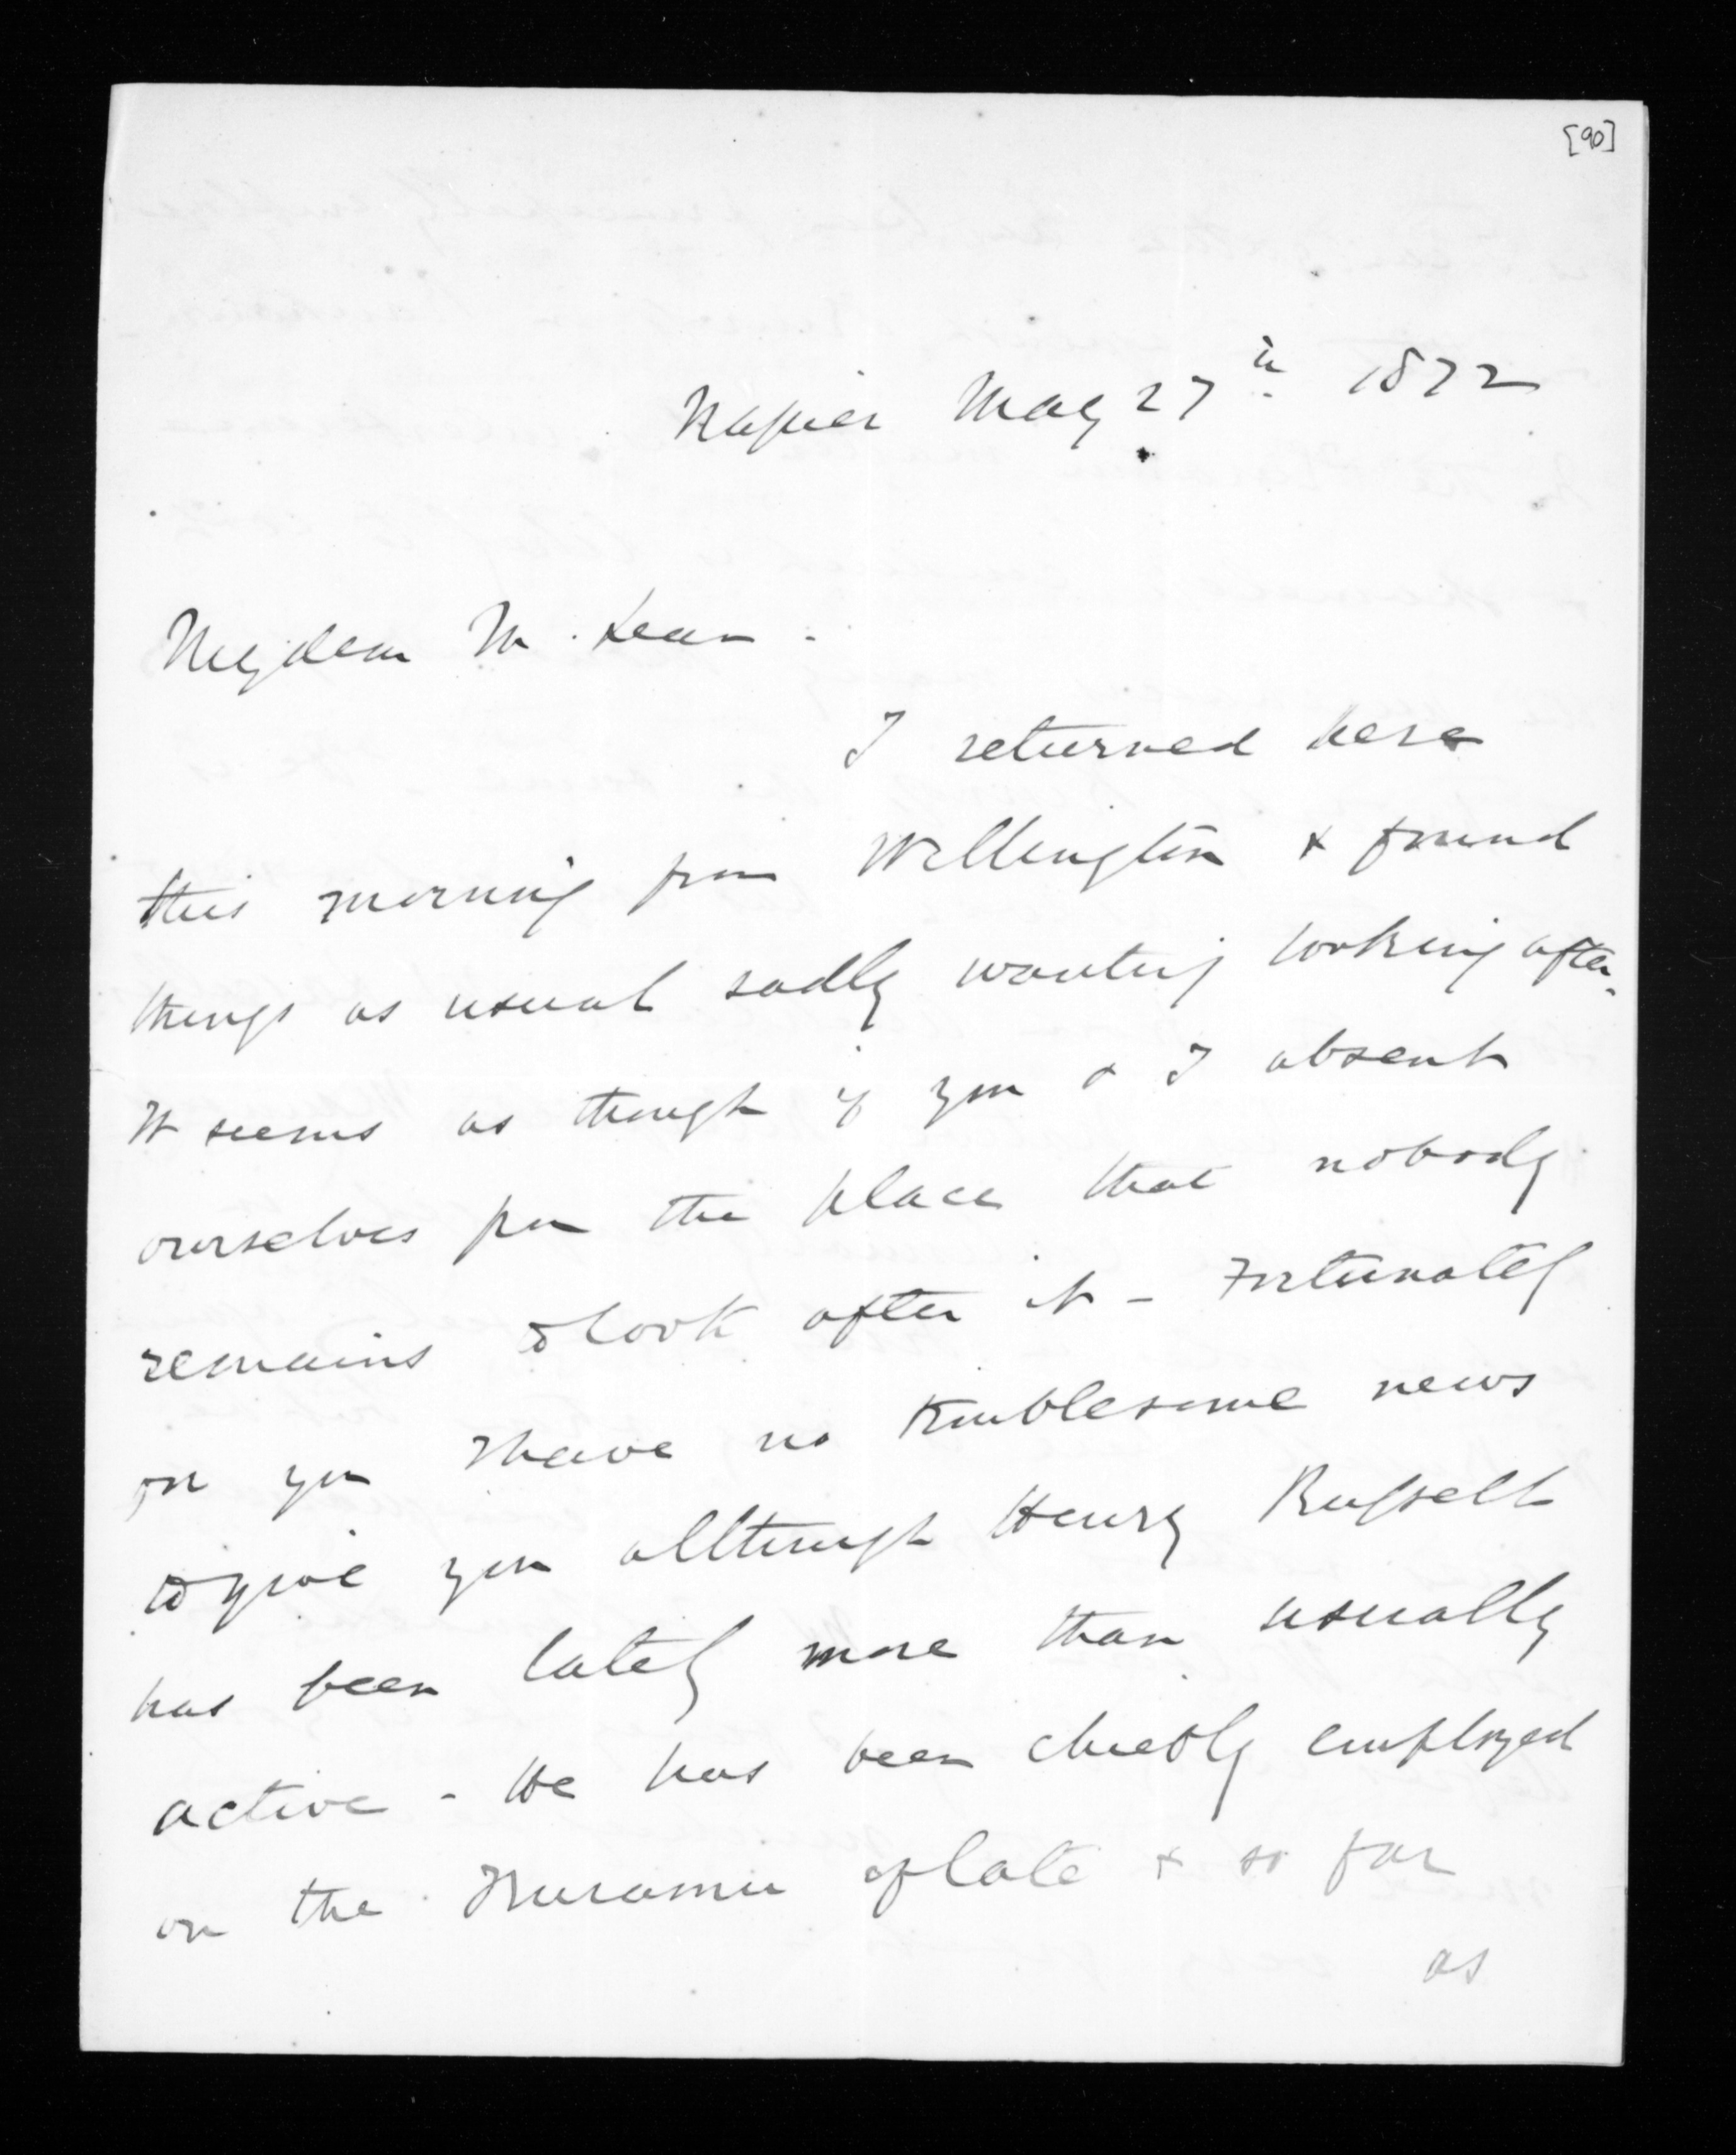 [90]
Napier May 27th 1872
My dear McLean -
I returned here
this morning from Wellington & found
things as usual sadly wanting looking after.
It seems as though if you & I absent
ourselves from the place that nobody
remains to look after it - Fortunately
for you I have no troublesome news
to give you although Henry Russell
has been lately more than usually
active - He has been chiefly employed
on the of late & so far
as